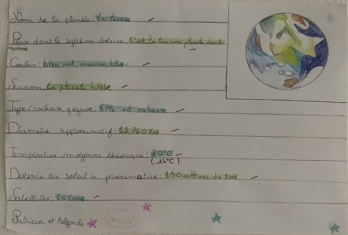 Nom de la planète : La terre
Place dans le système solaire : C'est la troisième planète
système
Couleur : bleu, vert, marron, blanc
Surnom : la planète bleue
Type (rocheuse, gazeuse) : Elle est rocheuse
Diamètre approximatif : 12 750 km
Température moyenne théorique :
(15°C)
Distance du soleil approximative : 150 millions de km
Satellites : La lune
Patricia et